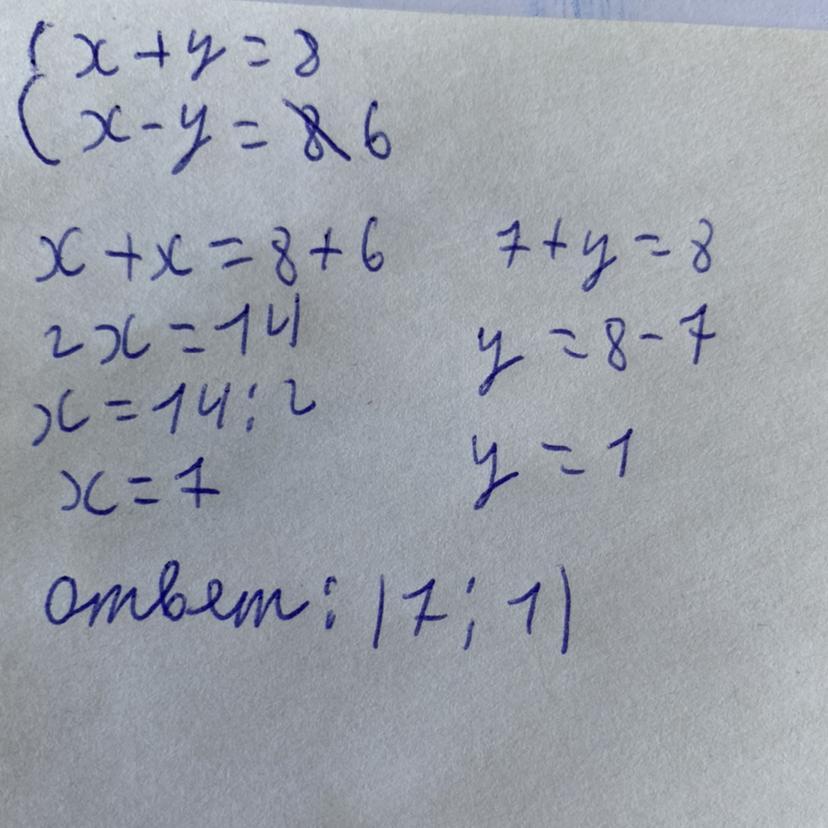 { x + y = 8
x - y = 6
x + x = 8 + 6
2x = 14
x = 14 : 2
x = 7
7 + y = 8
y = 8 - 7
y = 1
ответ: (7; 1)